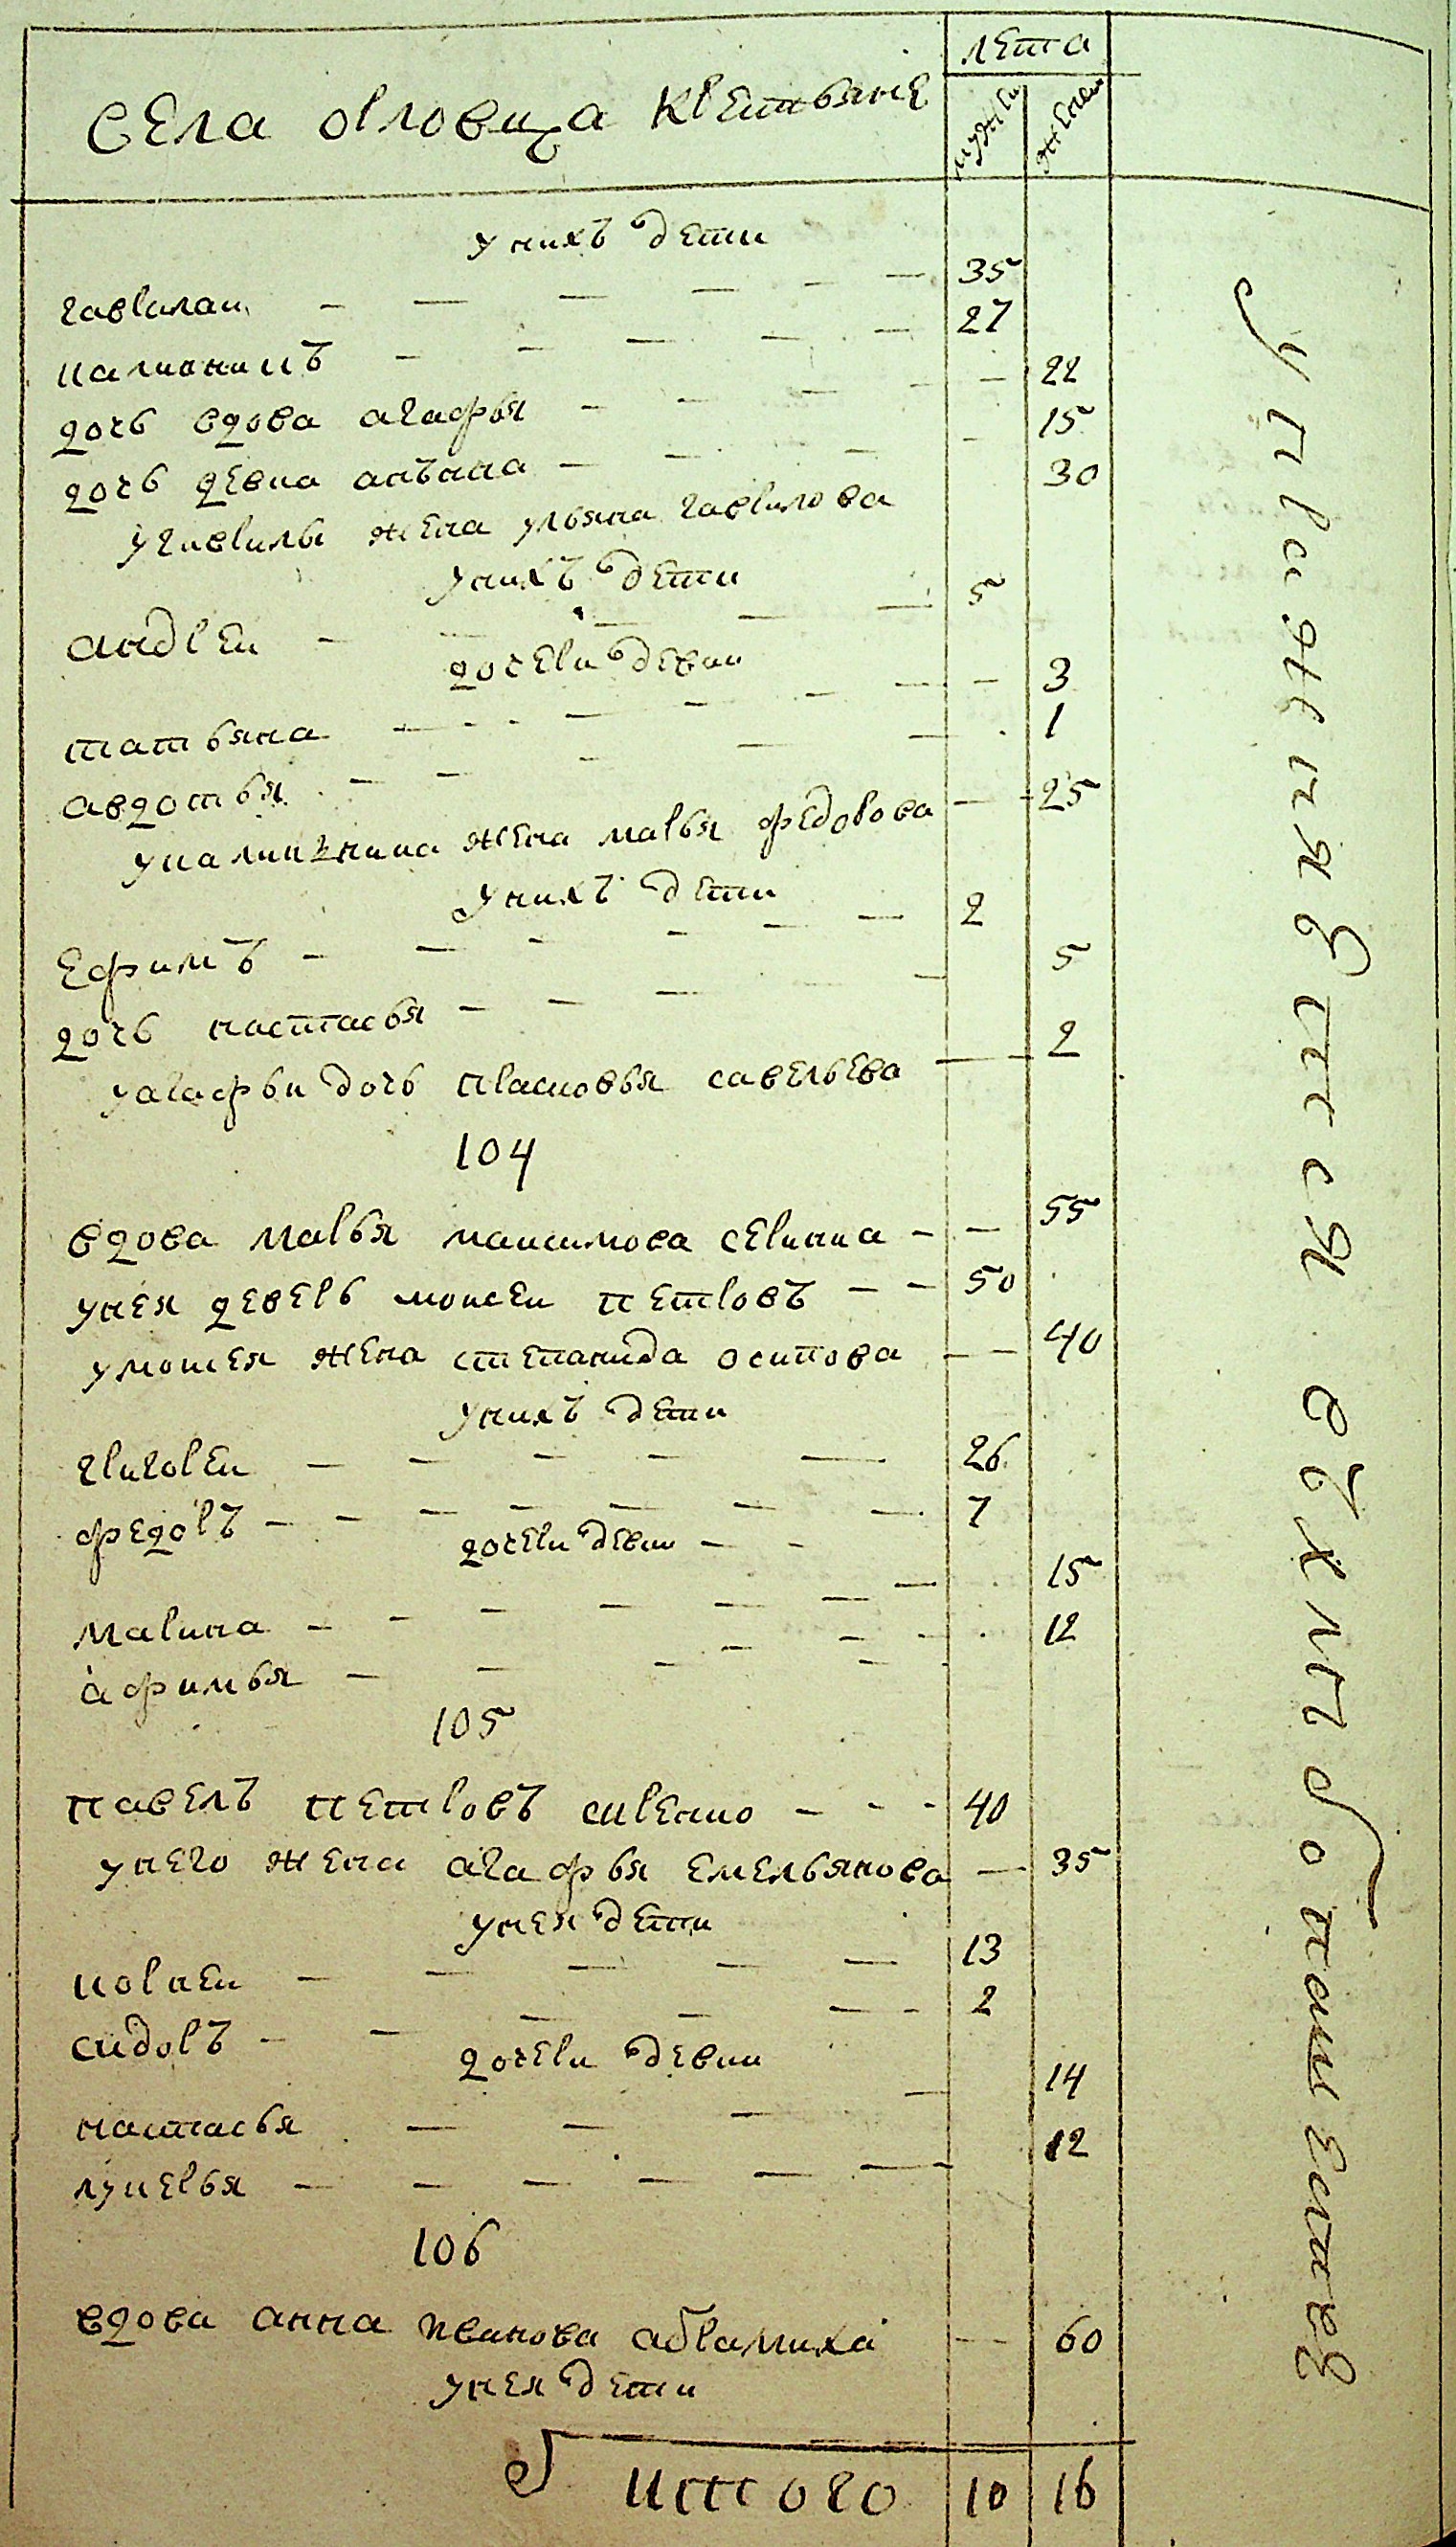 лета
села оrловища крестьяне
мужеск женск
у нихъ дети
гаврила — 35
калинникъ — 27
дочь вдова агафья — 22
дочь девка анъна — 15
у гаврилы жена ульяна гаврилова 30
у нихъ дети
андреи — 5
дочери девки
татьяна — 3
авдотья — 1
у калинъника жена марья федорова — 25
у нихъ дети
ефимъ — 2
дочь настасья — 5
у агафьи дочь прасковья савельева — 2
104
вдова марья максимова серикка — 55
у нея деверь мокеи петровъ — 50
у мокея жена степанида осипова — 40
у нихъ дети
григореи — 26
федоръ — 7
дочери девки —
марина — 15
афимья — 12
105
павелъ петровъ скренно — 40
у него жена агафья емельянова — 35
у нея дети
корнеи — 13
сидоръ — 2
дочери девки
настасья — 14
лукерья — 12
106
вдова анна иванова абрамиха — 60
у нея дети
итого 10 16
упражняится
въхлебопашестве